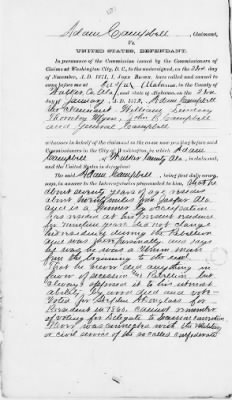 Adam Campbell, Claimant,
Vs.
UNITED STATES, DEFENDANT.
In pursuance of the Commission issued by the Commissioners of
Claims at Washington City, D. C., to the undersigned, on the 23rd day
of November, A. D. 1871, I John Brown have called and caused to
come before me at Jasper Alabama, in the County of
Walker Co Ala, and State of Alabama, on the
day January, A. D. 187, Adam Campbell
the Claimant Williams
Thornley John R. Campbell
and Campbell
witnesses in behalf of the claimant in the cause now pending before said
Commissioners in the City of Washington, in which Adam
Campbell of Walker County Ala, is claimant, and
the United States is defendant.
The said Adam Campbell, being first duly sworn,
says, in answer to the Interrogatories propounded to him: That he
about seventy years of age resides
about miles from Jasper Ala
and is a farmer by occupation
has resided at his present residence
for years did not change
his residence during the Rebellion
and was and says
that he was a Union man
from the beginning to the end
That he never did anything in
favor of secession or Rebellion but
always opposed it to his utmost
ability by word deed and vote
Voted for Stephen A Douglass for
President in 1860. cannot remember
of voting for Delegate to
Never was connected with the Military
or civil service of the so called confederate